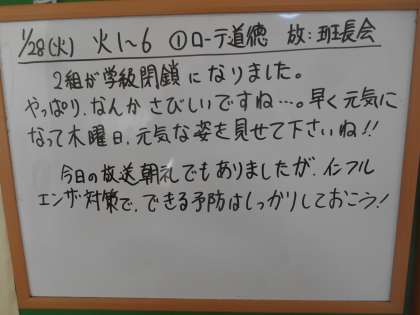 1/28(火) 火1～6 ①ローテ道徳 放:班長会
2組が学級閉鎖になりました。
やっぱり、なんかさびしいですね…。早く元気に
なって木曜日、元気な姿を見せて下さいね!!
今日の放送朝礼でもありましたが、インフル
エンザ対策で、できる予防はしっかりしておこう!